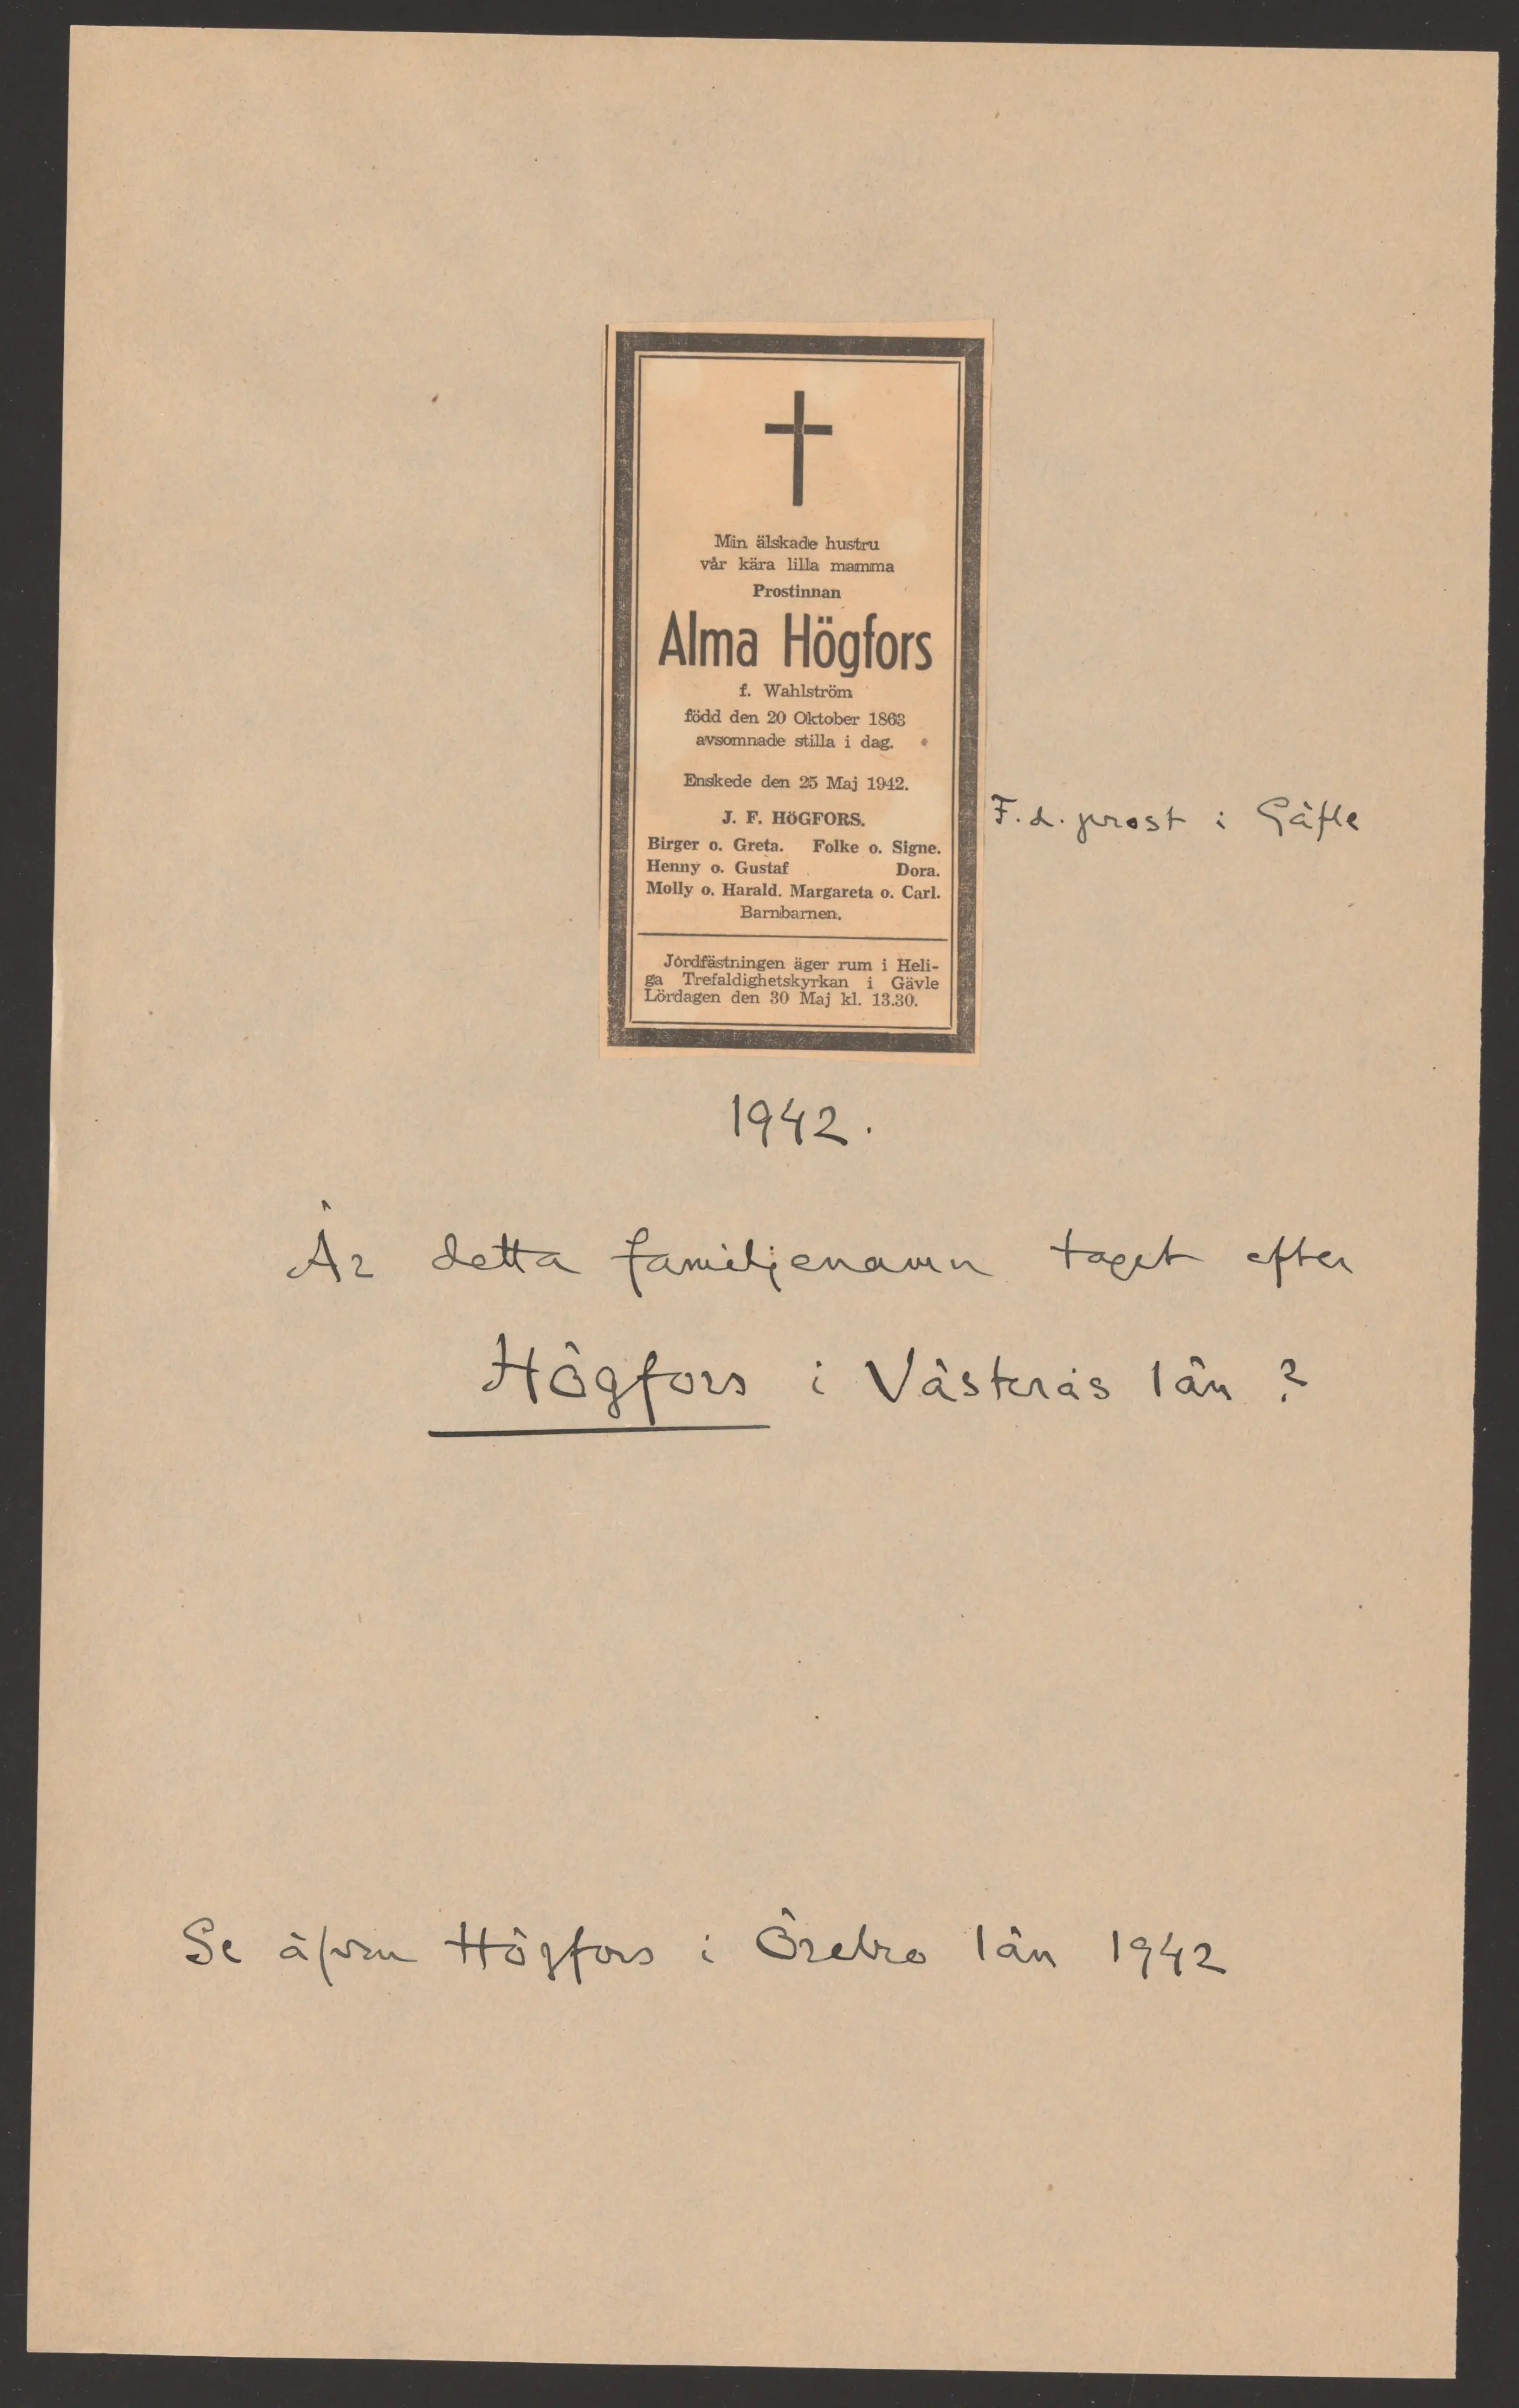 Min älskade hustru
vår kära lilla mamma
Prostinnan
Alma Högfors
f. Wahlström
född den 20 Oktober 1863
avsomnade stilla i dag.
Enskede den 25 Maj 1942.
J. F. HöGFORS.
F. d. prost i Gäfle
Birger o. Greta. Folke o. Signe.
Henny o. Gustaf Dora.
Molly o. Harald. Margareta o. Carl.
Barnbarnen.
Jordfästningen äger rum i Heli-
ga Trefaldighetskyrkan i Gävle
Lördagen den 30 Maj kl. 13.30.
1942.
Är detta familjenamn taget efter
Högfors i Västerås län?
Se äfven Högfors i Örebro län 1942